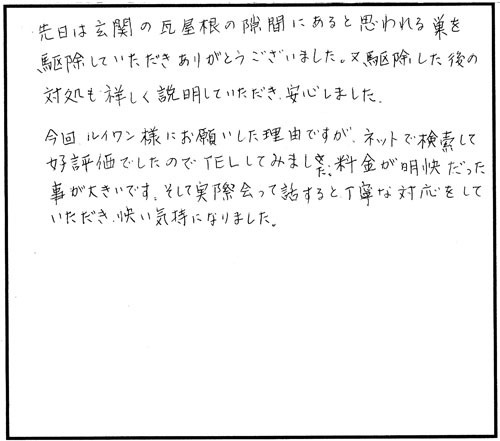 先日は玄関の瓦屋根の隙間にあると思われる巣を
駆除していただきありがとうございました。又駆除した後の
対処も詳しく説明していただき、安心しました。
今回ルイワン様にお願いした理由ですが、ネットで検索して
好評価でしたのでTELしてみました。料金が明快だった
事が大きいです。そして実際会って話すると、丁寧な対応をして
いただき、快い気持になりました。